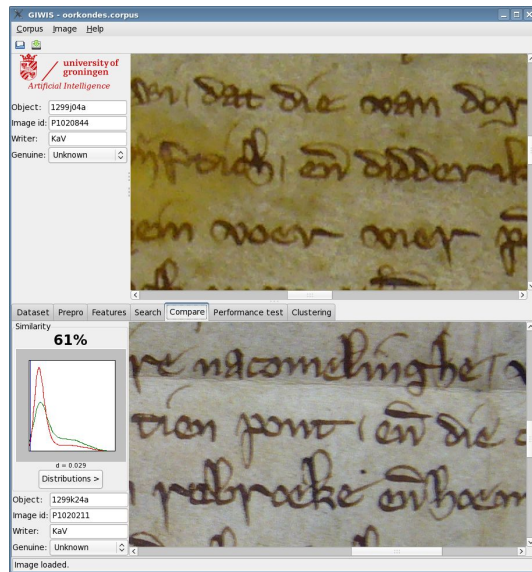 GIWIS - oorkondes.corpus
Corpus Image Help
university of
groningen
Artificial Intelligence
Object: 1299j04a
Image id: P1020844
Writer: KaV
Genuine: Unknown
dat die van dor
en̄ didderik
voer vier
Dataset Prepro Features Search Compare Performance test Clustering
Similarity
61%
d = 0.029
Distributions >
Object: 1299k24a
Image id: P1020211
Writer: KaV
Genuine: Unknown
re nacomelinghe
tien pont en̄ die
en̄
Image loaded.